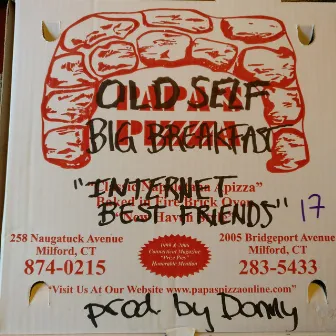 OLD SELF
PAPA'S
BIG BREAKFAST
PIZZA
"INTERNET
"Classic Napoletana Apizza"
Baked in Fire Brick Oven
BEST FRIENDS" 17
"New Haven Style"
258 Naugatuck Avenue
Milford, CT
874-0215
1999 & 2000
Connecticut Magazine
Honorable Mention
2005 Bridgeport Avenue
Milford, CT
283-5433
"Visit Us At Our Website www.papaspizzaonline.com"
prod by Donny